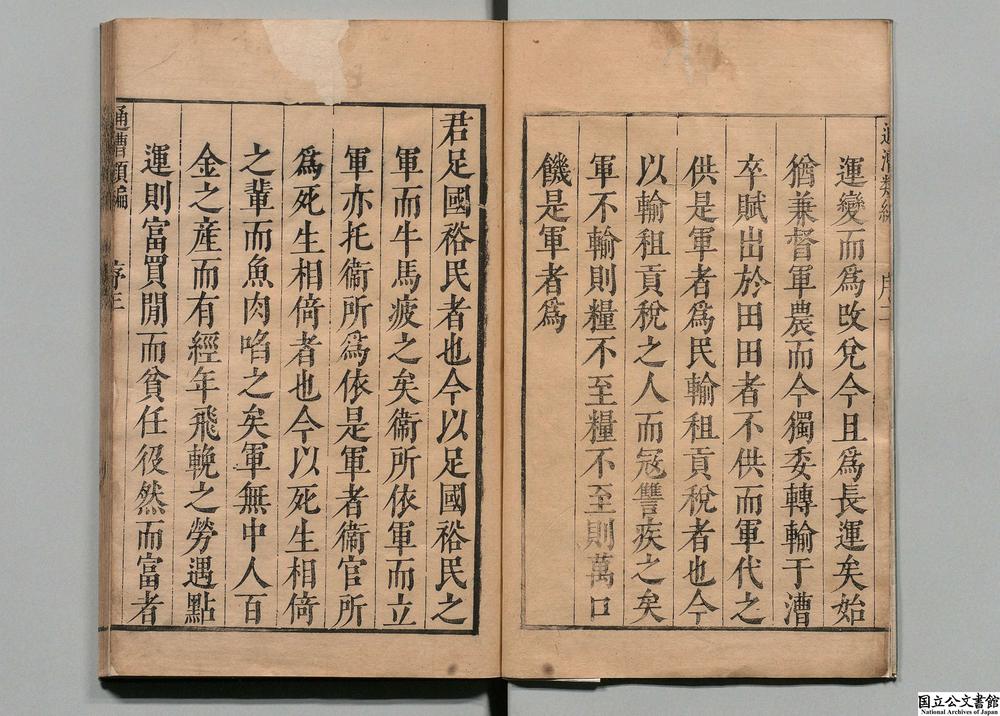 運變而爲改兌今且爲長運矣始
猶兼督軍農而今獨委轉輸于漕
卒賦出於田田者不供而軍代之
供是軍者爲民輸租貢稅者也今
以輸租貢稅之人而冦讐疾之矣
軍不輸則糧不至糧不至則萬口
饑是軍者爲
君足國裕民者也今以足國裕民之
軍而牛馬疲之矣衞所依軍而立
軍亦托衞所爲依是軍者衞官所
爲死生相倚者也今以死生相倚
之輩而魚肉啗之矣軍無中人百
金之産而有經年飛輓之勞遇點
運則富買閒而貧任役然而富者
通漕類編
序三
国立公文書館
National Archives of Japan